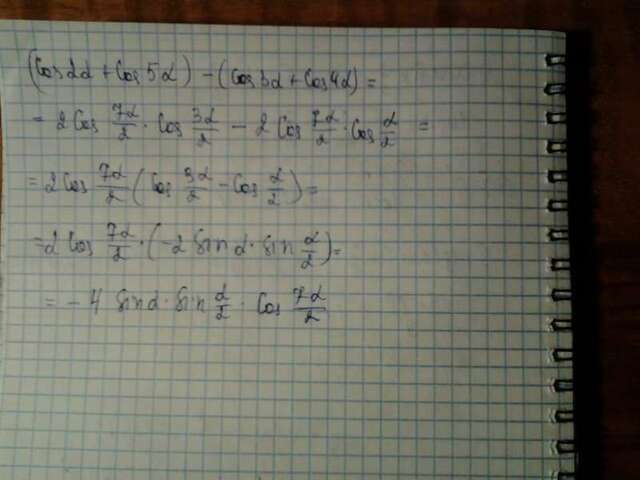 (Cos2α + Cos5α) - (Cos3α + Cos4α) =
= 2Cos 7α/2 · Cos 3α/2 - 2Cos 7α/2 · Cos α/2 =
= 2Cos 7α/2 (Cos 3α/2 - Cos α/2) =
= 2Cos 7α/2 · (-2 Sinα · Sin α/2) =
= -4 Sinα · Sin α/2 · Cos 7α/2